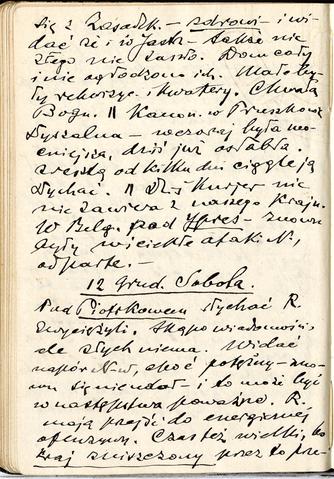 się z Zasadk. – zdrowi – i wi-
dać że i w Jastr – także nic
złego nie zaszło. Dom cały
i nie ogłodzono ich. Małe by-
ły rekwizyc. i kwatery. Chwała
Bogu. || Kanon. w Pruszkowie
słyszalna – wczoraj była mo-
cniejsza, dziś już osłabła.
zresztą od kilku dni ciągle ją
słychać. || Kurjer nic
nie zawiera z naszego Kraju.
W Belg. pod Ypres – znowu
były wściekłe ataki N.,
odparte. –
12 Grud. Sobota.
Pod Piotrkowem słychać R.
zwyciężyli. Skąpo wiadomości,
ale złych niema. Widać
napór N-ów, choć potężny – zno-
wu się nie udał – i to może być
w następstwa poważne. R.
mają przejść do energicznej
ofenzywy. Czas też wielki, bo
Kraj zniszczony przez to prze-